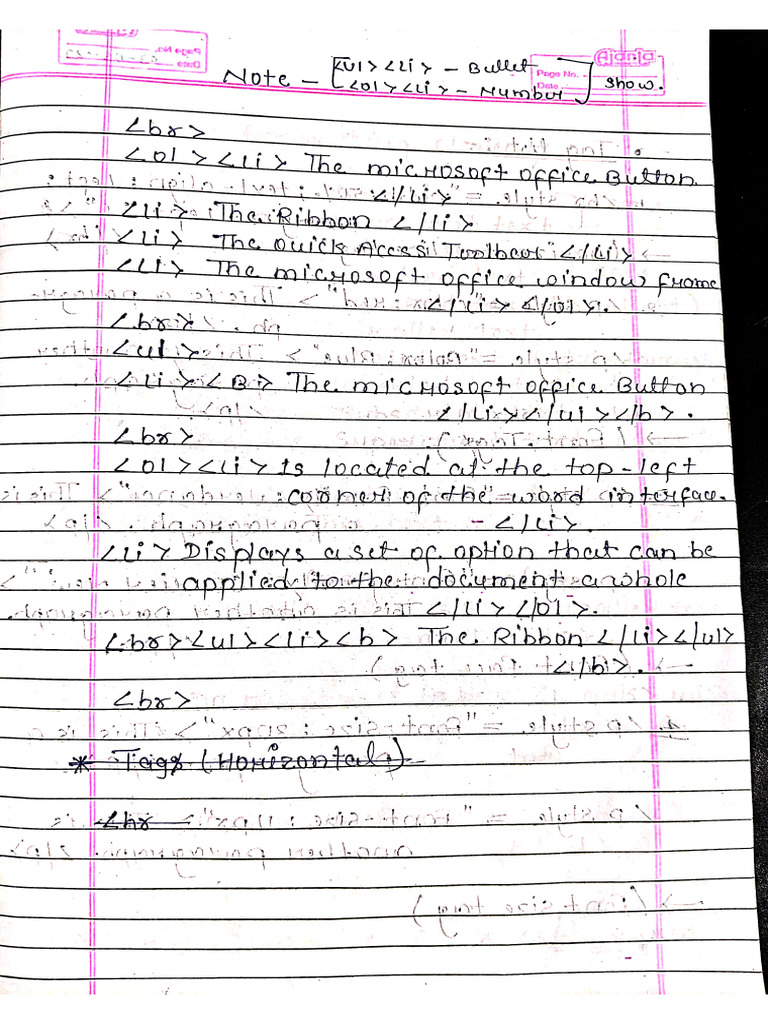 Ajanta
Page No.
Date
Note - [<ul> <li> - Bullet
<ol> <li> - Number] show.
<br>
<ol> <li> The microsoft office Button
</li>
<li> The Ribbon </li>
<li> The Quick Access Toolbar </li>
<li> The microsoft office window frame
</li> </ol>.
<br>
<ul>
<li> <B> The microsoft office Button
</li></ul></b>.
<br>
<ol><li> Is located at the top-left
corner of the word interface.
</li>.
<li> Displays a set of option that can be
applied to the document awhole
</li></ol>.
<br><ul><li><b> The Ribbon </li></ul>
</b>.
<br>
* Tags (Horizontal)
<hr>